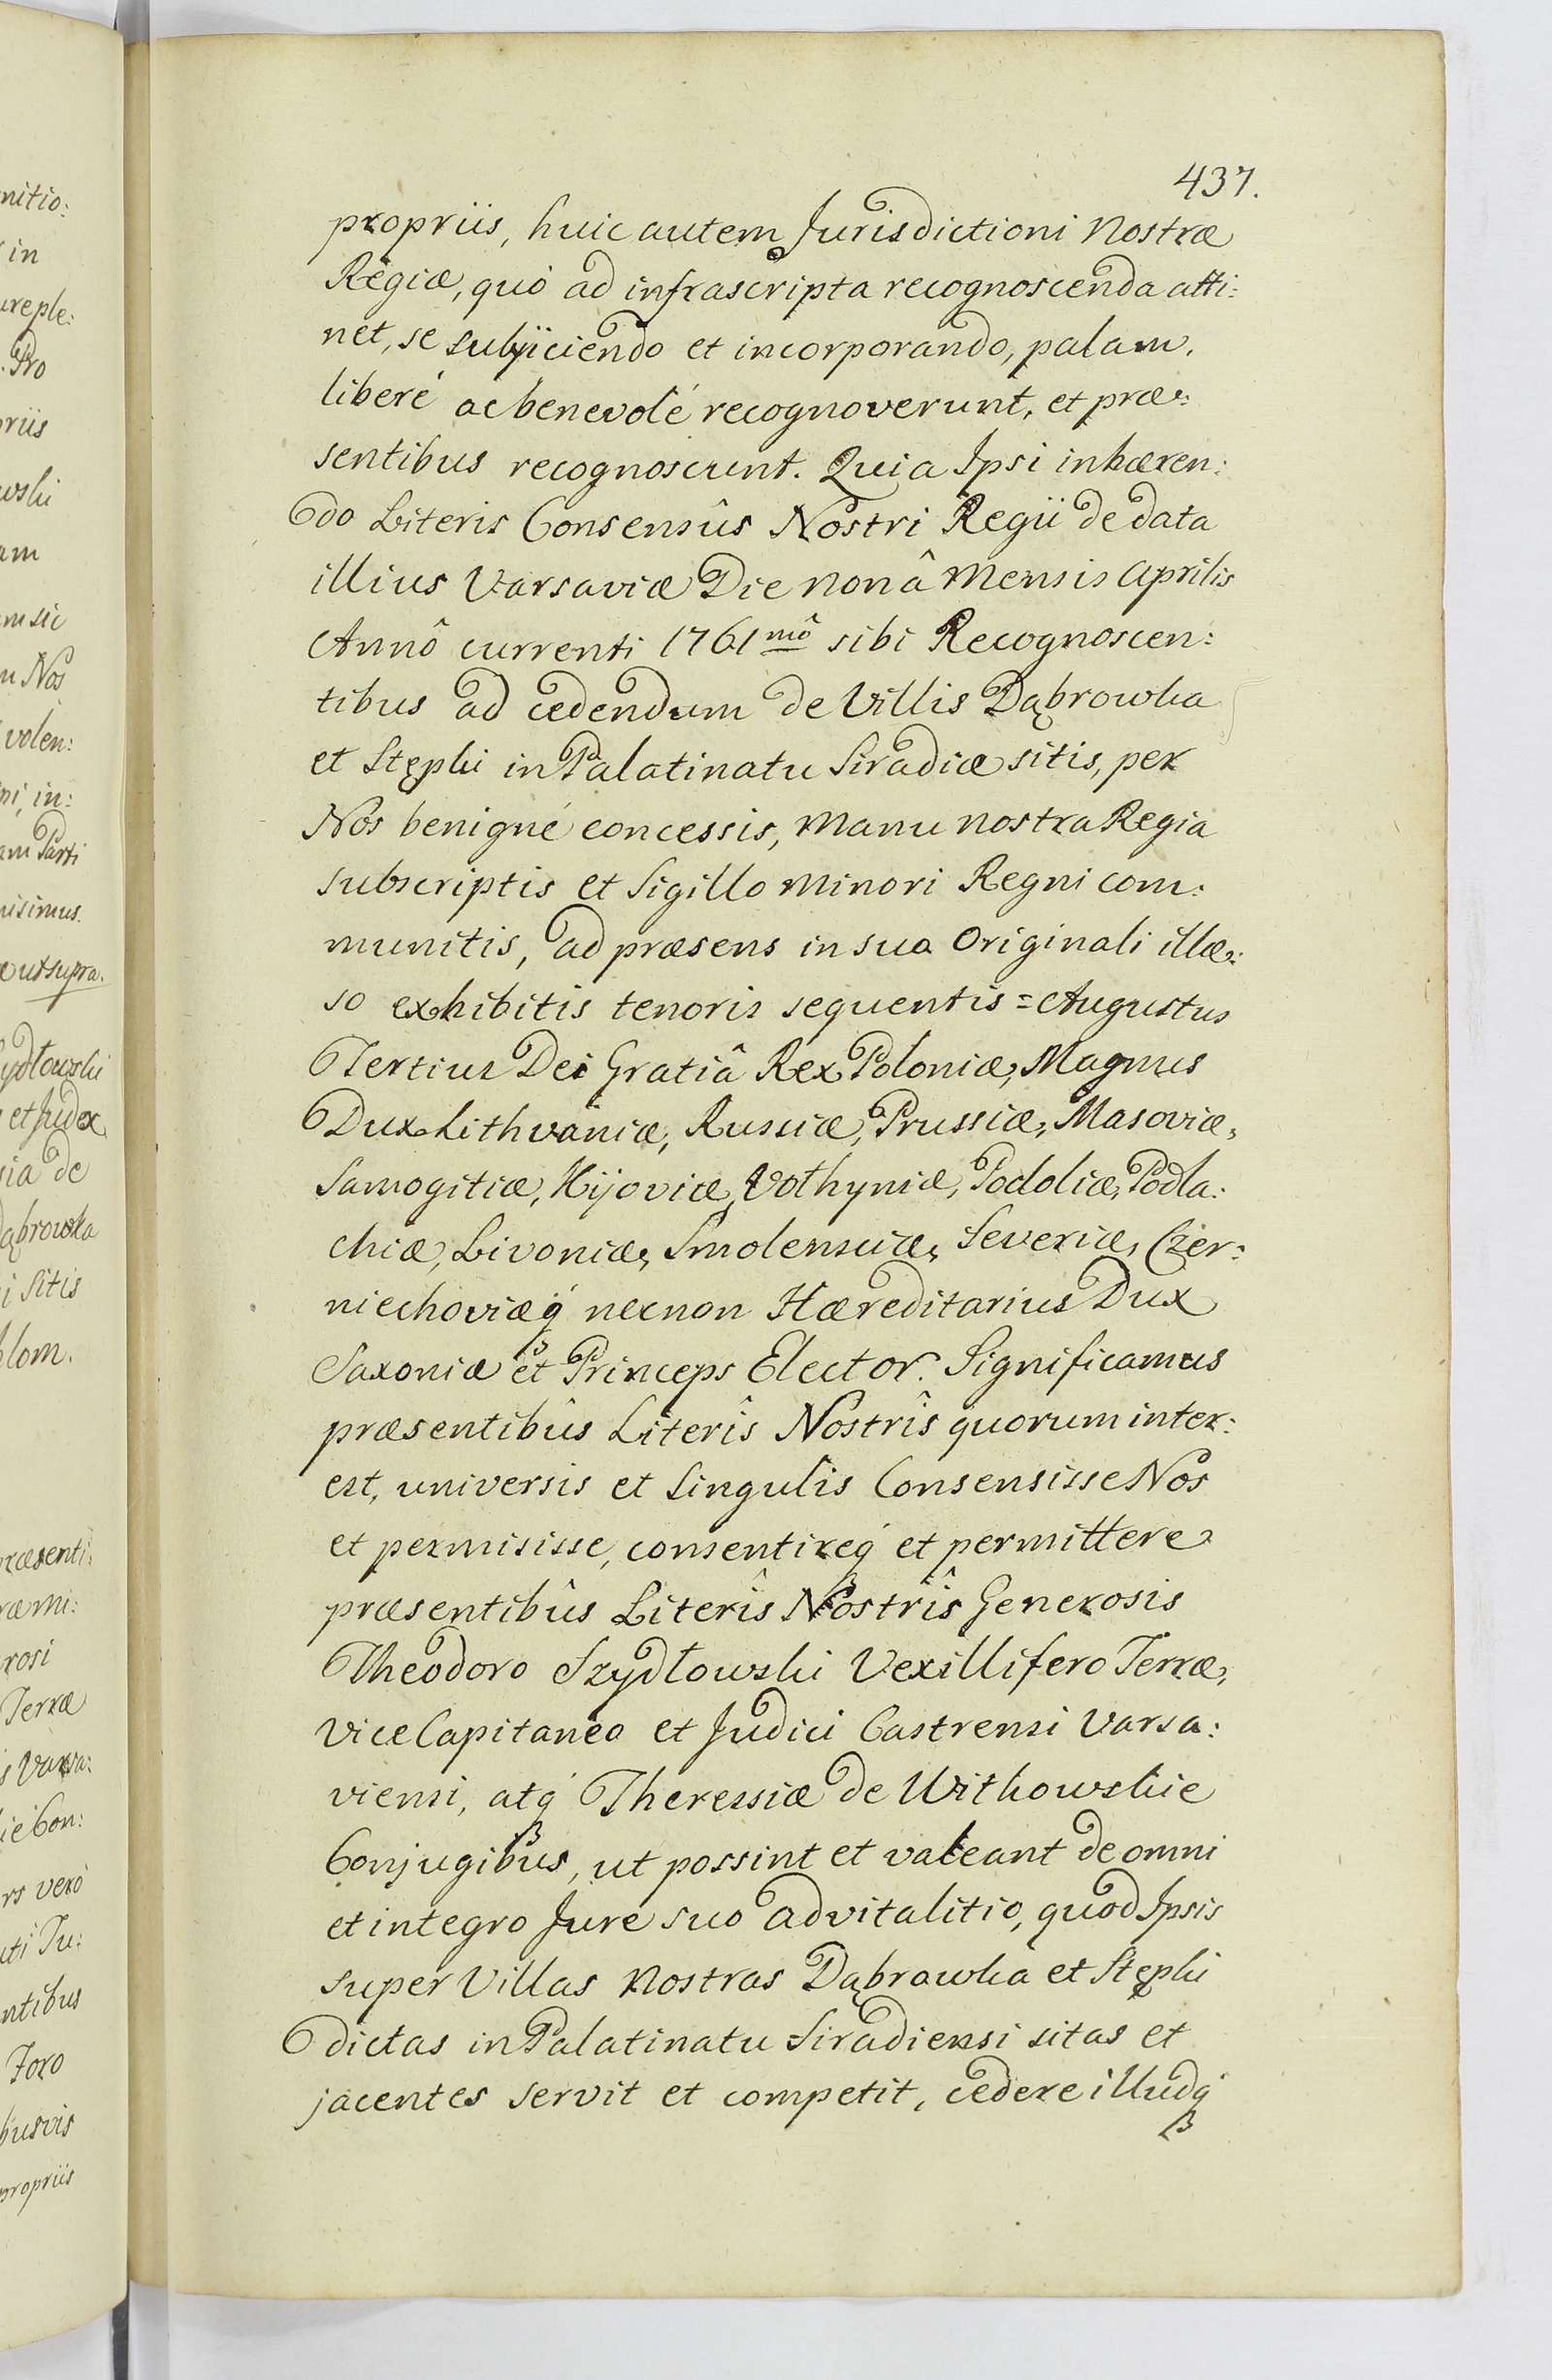 437.
propriis, huic autem Jurisdictioni Nostræ
Regiæ, quó ad infrascripta recognoscenda atti:
net, se subjiciendo et incorporando, palam.
liberé ac benevolé recognoverunt, et præ:
sentibus recognoscunt. Quia Ipsi inhæren:
do Literis Consensûs Nostri Regii de data
illius Varsaviæ Die nonâ Mensis Aprilis
Annô currenti 1761mô sibi Recognoscen:
tibus ad cedendum de Villis Dąbrowka
et Stęplii in Palatinatu Siradiæ sitis, per
Nos benigné concessis, Manu nostra Regia
subscriptis et Sigillo Minori Regni com:
munitis, ad præsens in suo Originali illæ:
so exhibitis tenoris sequentis = Augustus
Tertius Dei Gratiâ Rex Poloniæ, Magnus
Dux Lithvaniæ, Russiæ, Prussiæ, Masoviæ,
Samogitiæ, Kijoviæ, Volhyniæ, Podoliæ, Podla:
chiæ, Livoniæ, Smolensciæ, Severiæ, Czer:
niechoviæq́ necnon Hæreditarius Dux
Saxoniæ et Princeps Elector. Significamus
præsentibûs Literîs Nostrîs quorum inter:
est, universis et singulis Consensisse Nos
et permisisse, consentireq́ et permittere
præsentibûs Literîs Nostrîs Generosis
Theodoro Szydłowski Vexillifero Terræ,
Vice Capitaneo et Judici Castrensi Varsa:
viensi, atq́ Theressiæ de Witkowskie
Conjugibus, ut possint et valeant de omni
et integro Jure suo advitalitio, quod Ipsis
super Villas Nostras Dąbrowka et Stęplii
dictas in Palatinatu Siradiensi sitas et
jacentes servit et competit, cedere illudq́